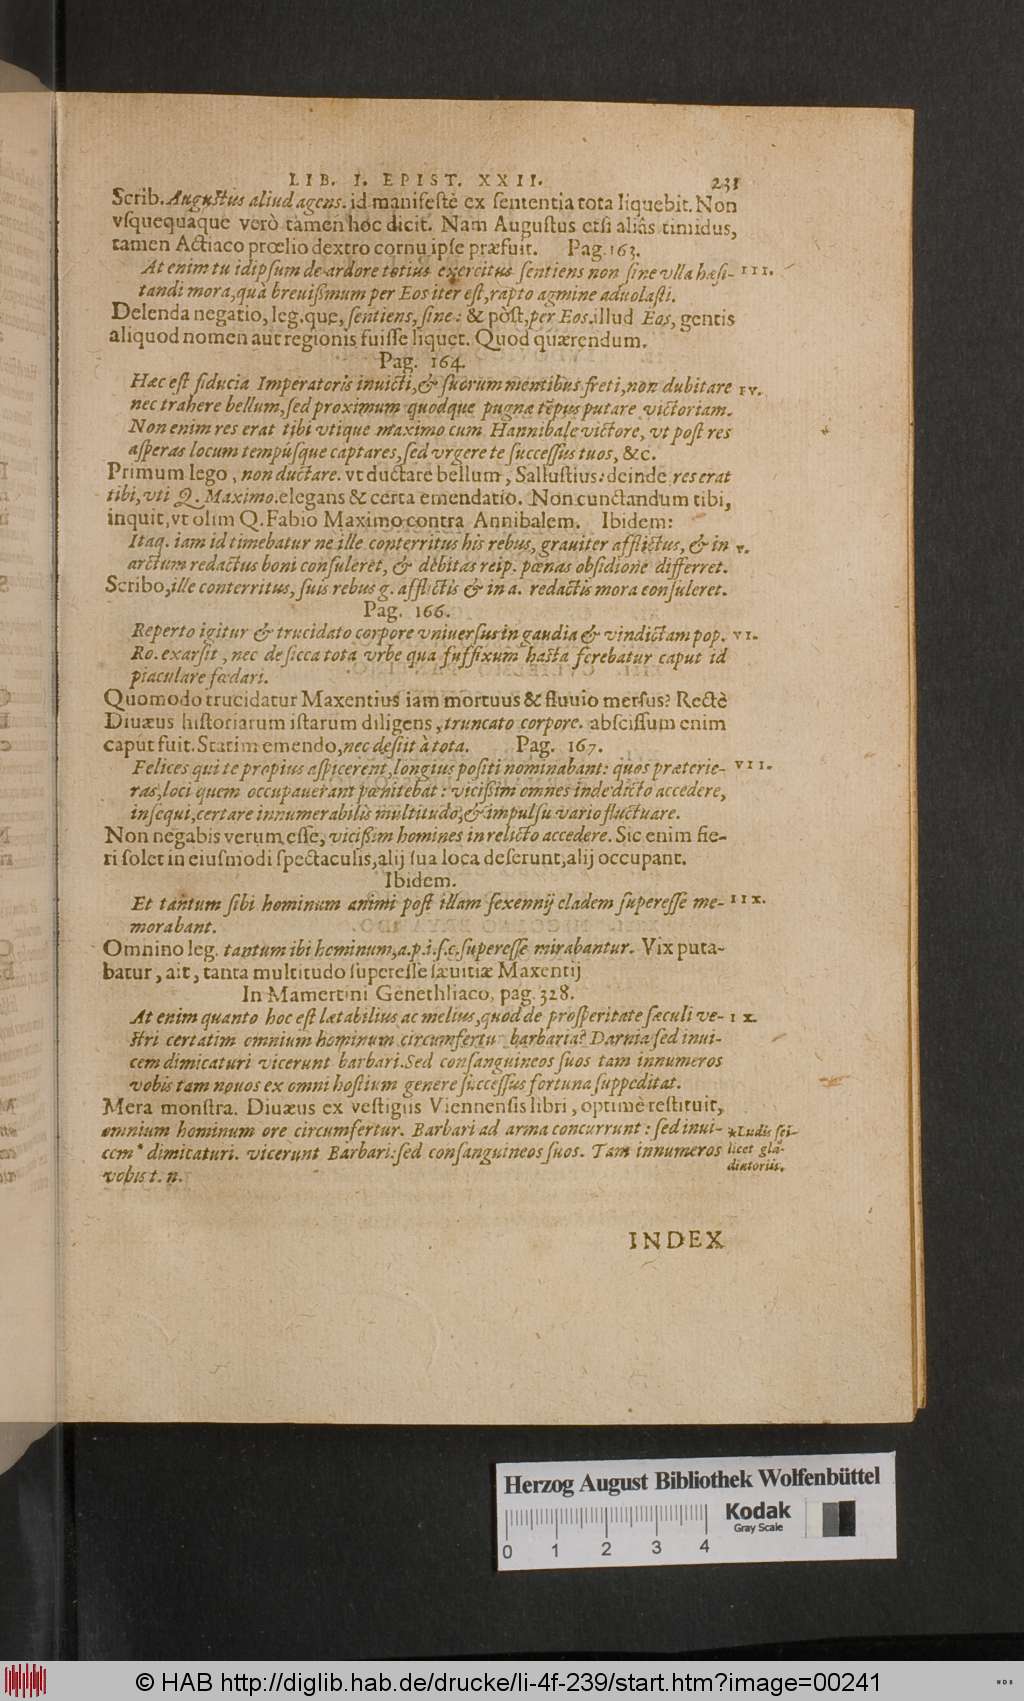 LIB. I. EPIST. XXII. 231
Scrib. Augustus aliud agens. id manifestè ex sententia tota liquebit. Non
vsquequaque verò tamen hoc dicit. Nam Augustus etsi aliâs timidus,
tamen Actiaco prœlio dextro cornu ipse præfuit. Pag. 163.
At enim tu idipsum de ardore totius exercitus sentiens non sine vlla hæsi- III.
tandi mora, quà breuißmum per Eos iter est, rapto agmine aduolasti.
Delenda negatio, leg. que, sentiens, sine: & pòst, per Eos. illud Eos, gentis
aliquod nomen aut regionis fuisse liquet. Quod quærendum.
Pag. 164.
Hæc est fiducia Imperatoris inuicti, & suorum mentibus freti, non dubitare IV.
nec trahere bellum, sed proximum quodque pugnæ tẽpus putare victoriam.
Non enim res erat tibi vtique maximo cum Hannibale victore, vt post res
asperas locum tempúsque captares, sed vrgere te successus tuos, &c.
Primum lego, non ductare. vt ductare bellum, Sallustius: deinde res erat
tibi, vti Q. Maximo. elegans & certa emendatio. Non cunctandum tibi,
inquit, vt olim Q. Fabio Maximo contra Annibalem. Ibidem:
Itaq. iam id timebatur ne ille conterritus his rebus, grauiter afflictus, & in V.
arctum redactus boni consuleret, & debitas reip. pœnas obsidione differret.
Scribo, ille conterritus, suis rebus g. afflictis & in a. redactis mora consuleret.
Pag. 166.
Reperto igitur & trucidato corpore vniuersus in gaudia & vindictam pop. VI.
Ro. exarsit, nec de sicca tota vrbe qua suffixum hasta ferebatur caput id
piaculare fœdari.
Quomodo trucidatur Maxentius iam mortuus & fluuio mersus? Rectè
Diuæus historiarum istarum diligens, truncato corpore. abscissum enim
caput fuit. Statim emendo, nec desiit à tota. Pag. 167.
Felices qui te propius aspicerent, longius positi nominabant: quos præterie- VII.
ras, loci quem occupauerant pœnitebat: vicißim omnes inde dicto accedere,
insequi, certare innumerabilis multitudo, & impulsu vario fluctuare.
Non negabis verum esse, vicißim homines in relicto accedere. Sic enim fie-
ri solet in eiusmodi spectaculis, alij sua loca deserunt, alij occupant.
Ibidem.
Et tantum sibi hominum animi post illam sexennij cladem superesse me- IIX.
morabant.
Omnino leg. tantum ibi hominum, a. p. i. s. c. superesse mirabantur. Vix puta-
batur, ait, tanta multitudo superesse sæuitiæ Maxentij
In Mamertini Genethliaco, pag. 328.
At enim quanto hoc est lætabilius ac melius, quod de prosperitate sæculi ve- IX.
stri certatim omnium hominum circumfertu barbaria? Darnia sed inui-
cem dimicaturi vicerunt barbari. Sed consanguineos suos tam innumeros
vobis tam nouos ex omni hostium genere successus fortuna suppeditat.
Mera monstra. Diuæus ex vestigiis Viennensis libri, optimè restituit,
omnium hominum ore circumfertur. Barbari ad arma concurrunt: sed inui-
cem* dimicaturi. vicerunt Barbari: sed consanguineos suos. Tam innumeros
vobis t. n.
*Ludis sci-
licet gla-
diatoriis.
INDEX
Herzog August Bibliothek Wolfenbüttel
Kodak
Gray Scale
0 1 2 3 4
© HAB http://diglib.hab.de/drucke/li-4f-239/start.htm?image=00241